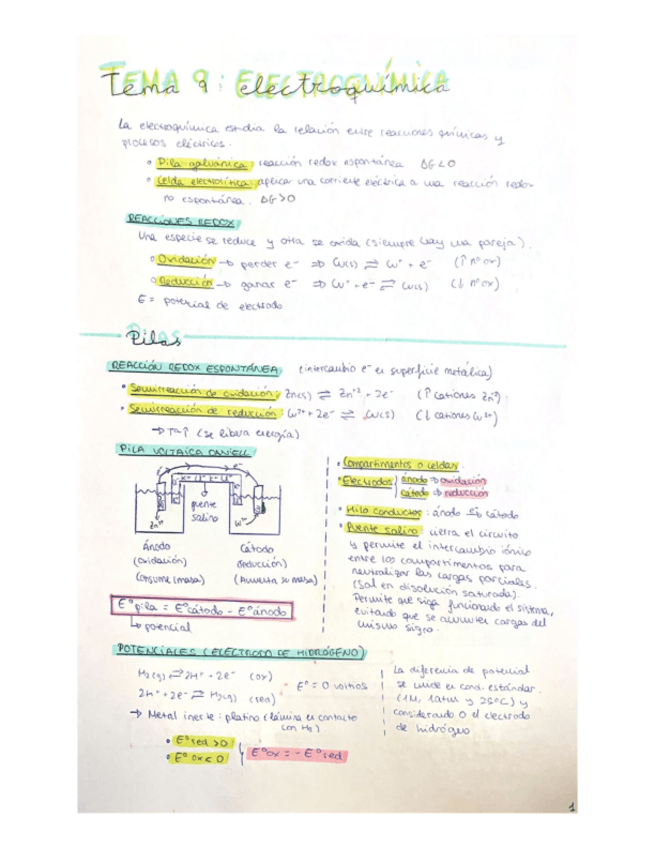 TEMA 9: ELECTROQUÍMICA
Tema 9 electroquímica
La electroquímica estudia la relación entre reacciones químicas y
procesos eléctricos.
• Pila galvánica: reacción redox espontánea ΔG<0
• Celda electrolítica: aplicar una corriente eléctrica a una reacción redox
no espontánea. ΔG>0
REACCIONES REDOX
Una especie se reduce y otra se oxida (siempre hay una pareja).
• Oxidación → perder e⁻ ⇒ Cu(s) ⇌ Cu⁺ + e⁻ (↑ nº ox)
• Reducción → ganar e⁻ ⇒ Cu⁺ + e⁻ ⇌ Cu(s) (↓ nº ox)
E = potencial de electrodo
Pilas
REACCIÓN REDOX ESPONTÁNEA (intercambio e⁻ en superficie metálica)
• Semirreacción de oxidación: Zn(s) ⇌ Zn⁺² + 2e⁻ (↑ cationes Zn²⁺)
• Semirreacción de reducción: Cu²⁺ + 2e⁻ ⇌ Cu(s) (↓ cationes Cu²⁺)
→ Tª↑ (se libera energía)
PILA VOLTAICA DANIELL
e⁻
e⁻
puente
salino
Zn²⁺
Cu²⁺
Ánodo
(oxidación)
(consume masa)
Cátodo
(reducción)
(Aumenta su masa)
E°pila = E°cátodo - E°ánodo
↳ potencial
• Compartimentos o celdas.
• Electrodos ánodo ⇒ oxidación
cátodo ⇒ reducción
• Hilo conductor: ánodo cátodo
• Puente salino: cierra el circuito
y permite el intercambio iónico
entre los compartimentos para
neutralizar las cargas parciales.
(Sal en disolución saturada).
Permite que siga funcionando el sistema,
evitando que se acumulen cargas del
mismo signo.
POTENCIALES (ELECTRODO DE HIDRÓGENO)
H₂(g) ⇌ 2H⁺ + 2e⁻ (ox)
2H⁺ + 2e⁻ ⇌ H₂(g) (red)
E° = 0 voltios
→ Metal inerte: platino (lámina en contacto
con H₂)
• E°red >0
• E°ox <0
E°ox = - E°red
La diferencia de potencial
se mide en cond. estándar.
(1M, 1atm y 25°C) y
considerando 0 el electrodo
de hidrógeno
1